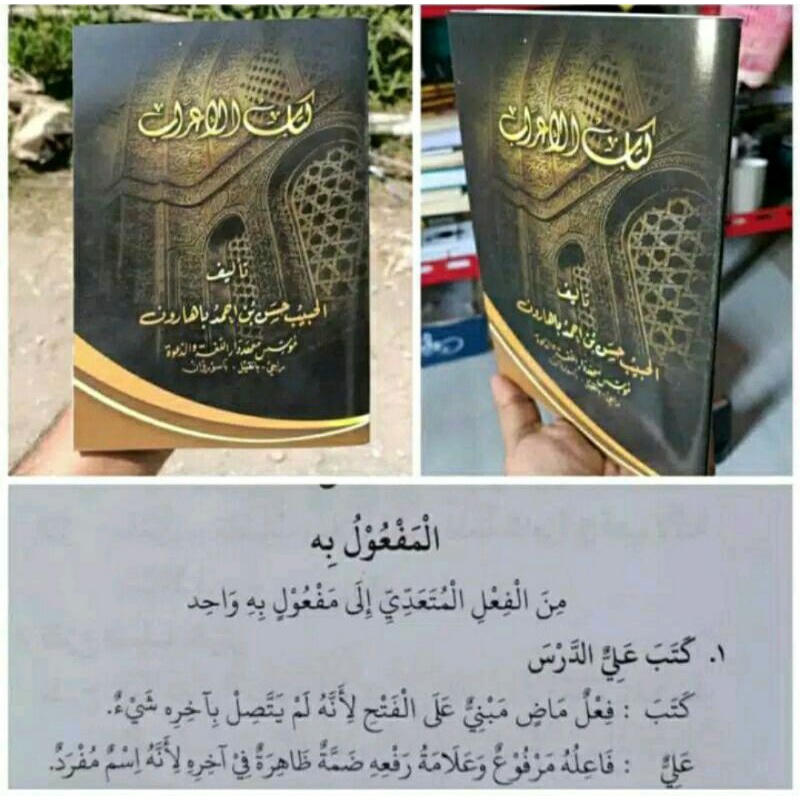 كتاب الإعراب
تأليف
الحبيب حسن بن احمد باهارون
مؤسس معهد دار اللغة والدعوة
راجي - بانقيل - باسوروان
كتاب الإعراب
تأليف
الحبيب حسن بن احمد باهارون
مؤسس معهد دار اللغة والدعوة
الْمَفْعُوْلُ بِه
مِنَ الْفِعْلِ الْمُتَعَدِّيِّ إِلَى مَفْعُوْلٍ بِهِ وَاحِد
١. كَتَبَ عَلِيٌّ الدَّرْسَ
كَتَبَ : فِعْلٌ مَاضٍ مَبْنِيٌّ عَلَى الْفَتْحِ لِأَنَّهُ لَمْ يَتَّصِلْ بِآخِرِهِ شَيْءٌ.
عَلِيٌّ : فَاعِلُهُ مَرْفُوْعٌ وَعَلَامَةُ رَفْعِهِ ضَمَّةٌ ظَاهِرَةٌ فِيْ آخِرِهِ لِأَنَّهُ اِسْمٌ مُفْرَدٌ.